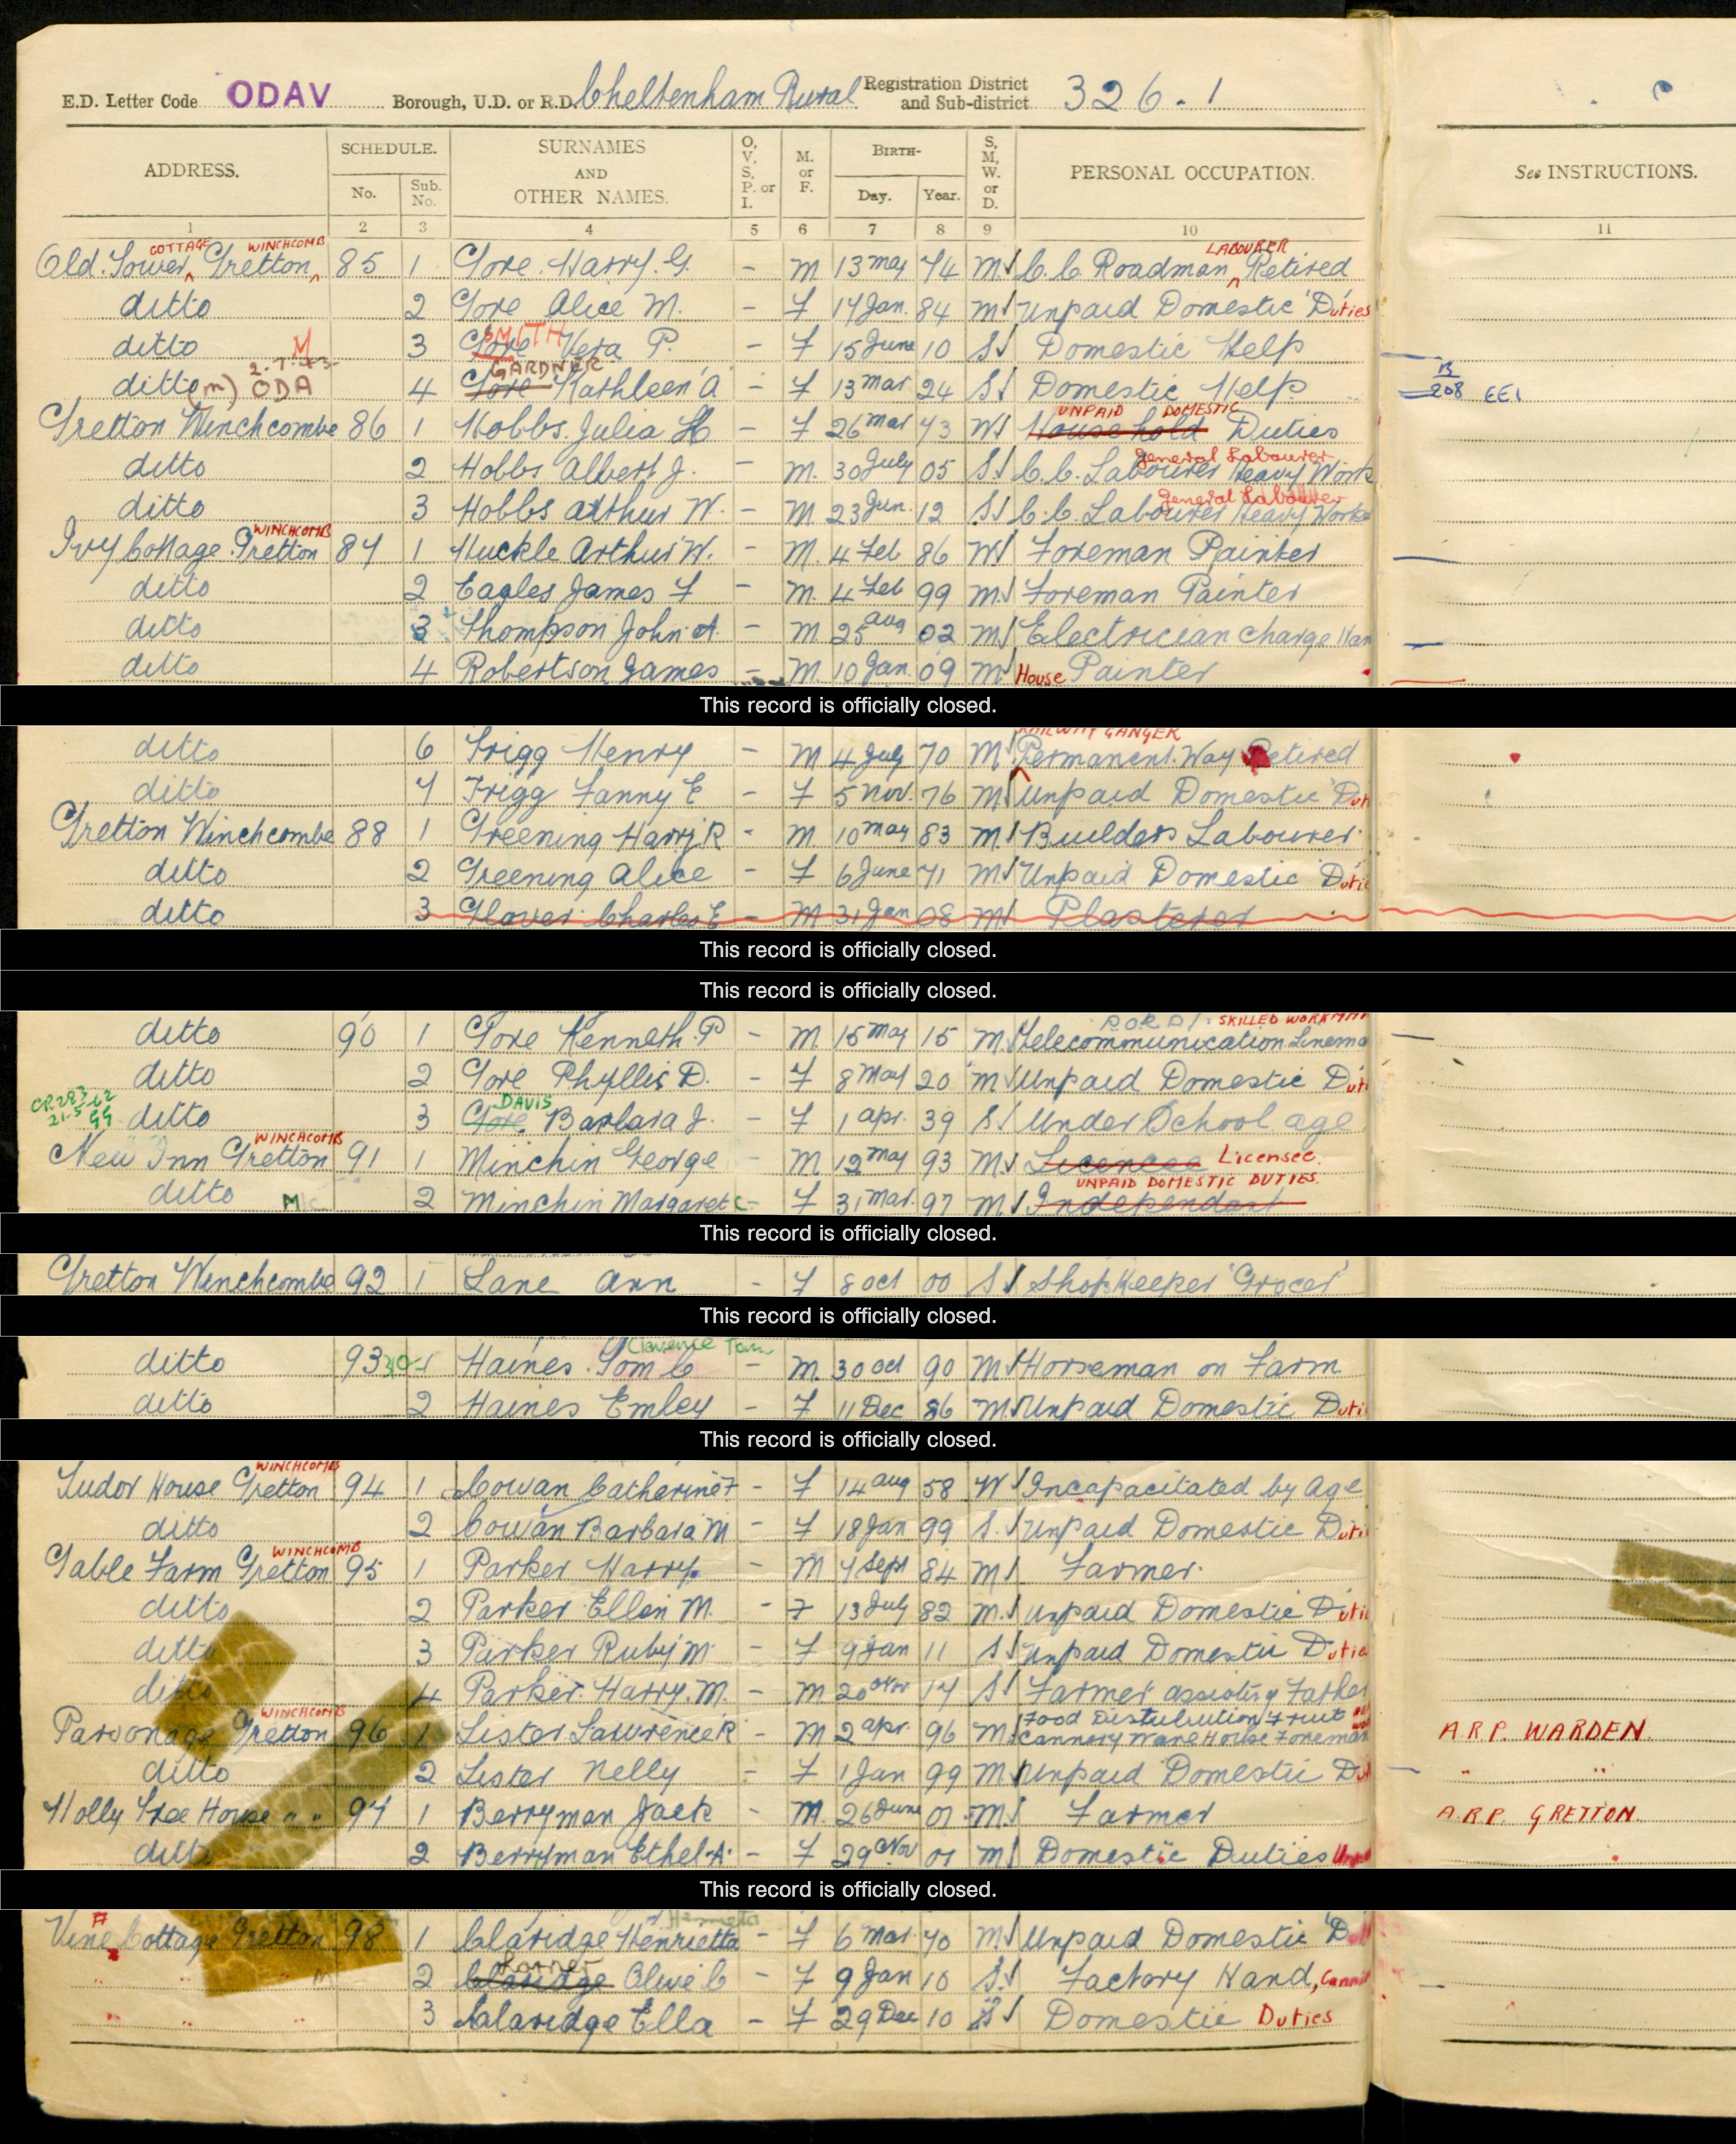 E.D. Letter Code ODAV Borough, U.D. or R.D. Cheltenham Rural Registration District and Sub-district 326.1
ADDRESS. SCHEDULE. No. Sub. No. SURNAMES AND OTHER NAMES. O, V, S, P. or I. M. or F. BIRTH- Day. Year. S, M, W. or D. PERSONAL OCCUPATION. See INSTRUCTIONS.
1 2 3 4 5 6 7 8 9 10 11
COTTAGE WINCHCOMB LABOURER
Old Tower Gretton 85 1 Gore Harry G. - M 13 May 74 M C.C. Roadman Retired
ditto 2 Gore Alice M. - F 17 Jan. 84 M Unpaid Domestic Duties
SMITH
ditto M 3 Gore Vera P. - F 15 June 10 S Domestic Help
2.7.43 GARDNER
ditto (m) ODA 4 Gore Kathleen A - F 13 Mar 24 S Domestic Help B 208 EE1
UNPAID DOMESTIC
Gretton Winchcombe 86 1 Hobbs Julia H - F 26 Mar 73 W Household Duties
General Labourer
ditto 2 Hobbs Albert J. - M. 30 July 05 S C.C. Labourer Heavy Work
General Labourer
ditto 3 Hobbs Arthur W. - M 23 Jun. 12 S C.C. Labourer Heavy Worke
WINCHCOMB
Ivy Cottage Gretton 87 1 Huckle Arthur W. - M. 4 Feb 86 W Foreman Painter
ditto 2 Eagles James F - M. 4 Feb 99 M Foreman Painter
ditto 3 Thompson John A - M 25 Aug 02 M Electrician Charge Han
ditto 4 Robertson James - M. 10 Jan. 09 M House Painter
This record is officially closed.
RAILWAY GANGER
ditto 6 Trigg Henry - M 4 July 70 M Permanent Way Retired
ditto 7 Trigg Fanny E - F 5 Nov. 76 M Unpaid Domestic Dut
Gretton Winchcombe 88 1 Greening Harry R - M. 10 May 83 M Builders Labourer
ditto 2 Greening Alice - F 6 June 71 M Unpaid Domestic Dutie
ditto 3 Glover Charles E - M 31 Jan 08 M Plasterer
This record is officially closed.
This record is officially closed.
SKILLED WORKMAN
ditto 90 1 Gore Kenneth P - M. 15 May 15 M Telecommunication Linema
ditto 2 Gore Phyllis D. - F 8 May 20 M Unpaid Domestic Dut
CR283 62 DAVIS
21.5 GG ditto 3 Gore Barbara J. - F 1 Apr. 39 S Under School age
WINCHCOMB
New Inn Gretton 91 1 Minchin George - M 12 May 93 M Licencee Licensee.
UNPAID DOMESTIC DUTIES.
ditto M C 2 Minchin Margaret C - F 31 Mar. 97 M Independant
This record is officially closed.
Gretton Winchcombe 92 1 Lane Ann - F 8 Oct 00 S Shop Keeper 'Grocer'
This record is officially closed.
Clarence Tom
ditto 93 1 Haines Tom C - M. 30 Oct 90 M Horseman on Farm
ditto 2 Haines Emley - F 11 Dec 86 M Unpaid Domestic Duti
This record is officially closed.
WINCHCOMB
Tudor House Gretton 94 1 Cowan Catherine F - F 14 Aug 58 W Incapacitated by Age
ditto 2 Cowan Barbara M - F 18 Jan 99 S. Unpaid Domestic Duti
WINCHCOMB
Gable Farm Gretton 95 1 Parker Harry. - M 7 Sept 84 M Farmer.
ditto 2 Parker Ellen M. - F 13 July 82 M. Unpaid Domestic Dutie
ditto 3 Parker Ruby M. - F 9 Jan 11 S Unpaid Domestic Dutie
ditto 4 Parker Harry. M. - M 20 Nov 17 S Farmer assisting Father
WINCHCOMB Food Distribution Fruit
Parsonage Gretton 96 1 Lister Lawrence R - M 2 Apr. 96 M Cannery Ware House Foreman A.R.P. WARDEN.
ditto 2 Lister Nelly - F 1 Jan 99 M Unpaid Domestic Du " "
Holly Tree House " " 97 1 Berryman Jack - M. 26 June 01 M. Farmer A.R.P. GRETTON.
ditto 2 Berryman Ethel A. - F 29 Nov 01 M Domestic Duties
This record is officially closed.
Henrietta
Vine Cottage Gretton 98 1 Claridge Henrietta - F 6 Mar 70 M Unpaid Domestic D
Larner
" " " M 2 Claridge Olive C - F 9 Jan 10 S. Factory Hand,
" " " 3 Claridge Ella - F 29 Dec 10 S Domestic Duties